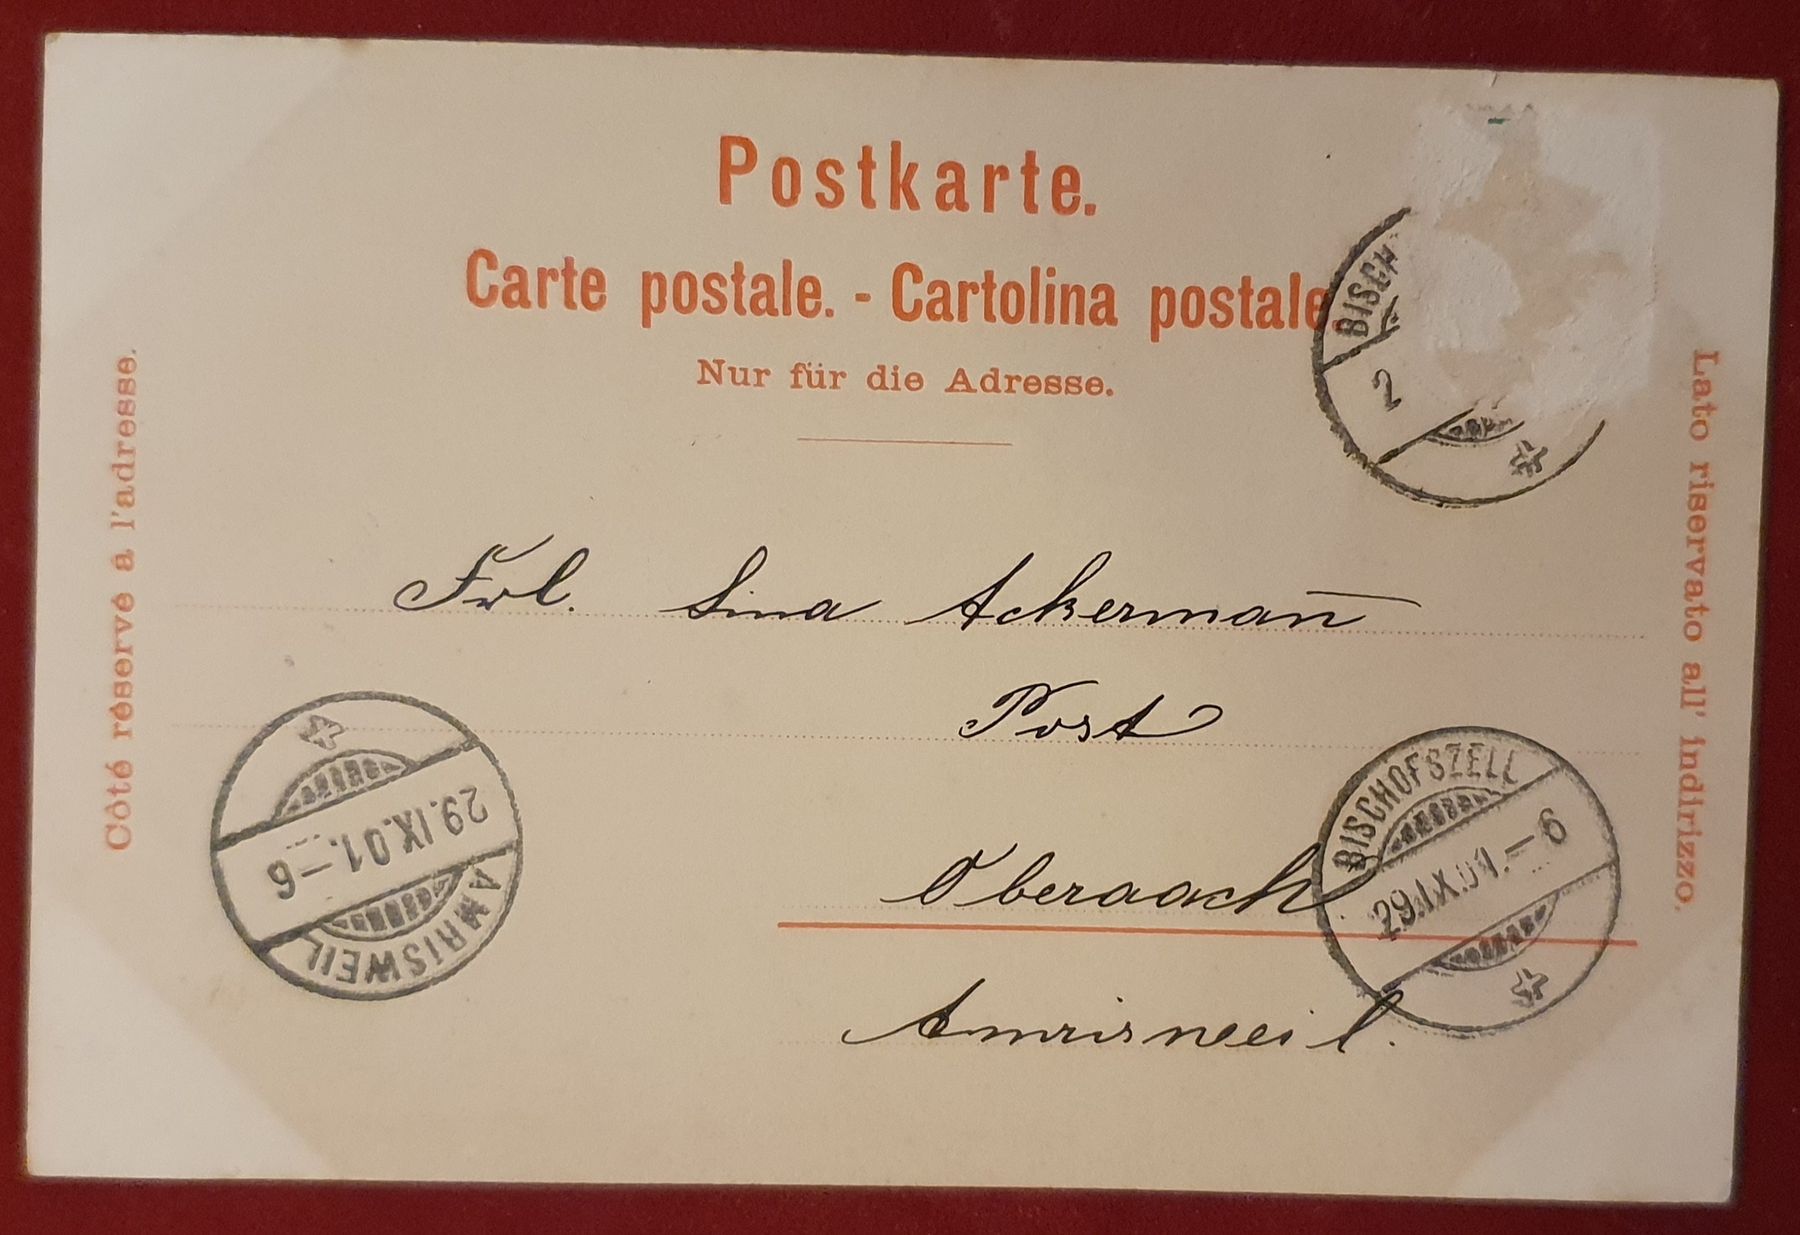 Postkarte.
Carte postale. - Cartolina postale.
Nur für die Adresse.
Côté réservé à l'adresse.
Lato riservato all' indirizzo.
BISCH
2
Frl. Lina Ackerman̅
Post
Oberaach
Amrisweil.
BISCHOFSZELL
29.IX.01.–9
AMRISWEIL
29.IX.01.–6